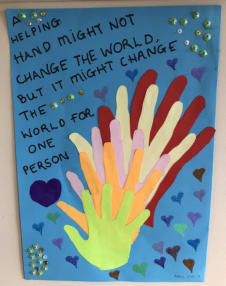 A
HELPING
HAND MIGHT NOT
CHANGE THE WORLD,
BUT IT MIGHT CHANGE
THE
WORLD FOR
ONE
PERSON